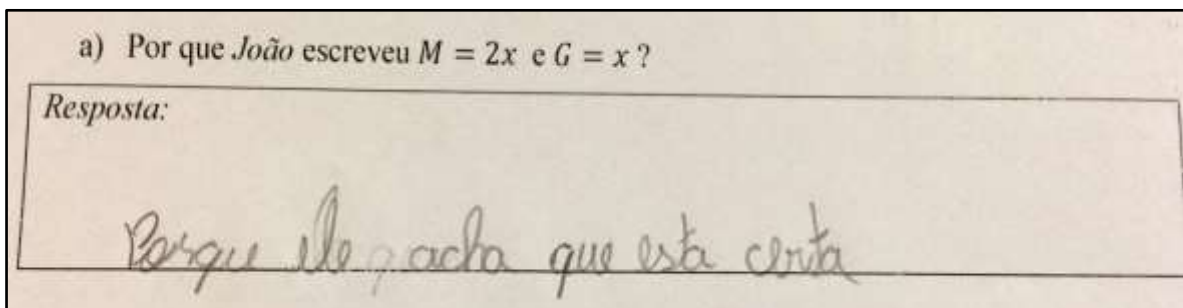 a) Por que João escreveu M = 2x e G = x ?
Resposta:
Porque ele acha que esta certa